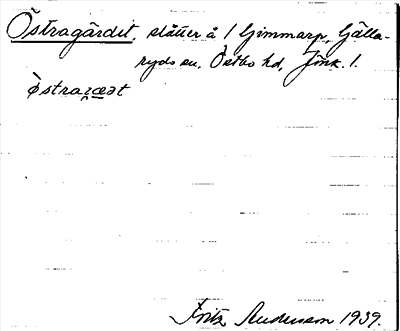 Östragärdit, slåtter å 1 Gimmarp, Gälla-
ryds sn, Östbo hd, Jönk. l.
Fritz Andersson 1939.